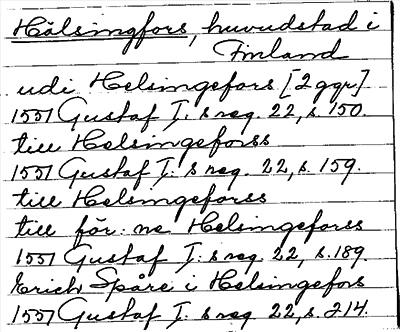 Hälsingfors, huvudstad i
Finland
udi Helsingefors [2 ggr]
1551 Gustaf I: s reg. 22, s. 150.
till Helsingeforss
1551 Gustaf I: s reg. 22, s. 159.
till Helsingeforss
till för: ne Helsingeforss
1551 Gustaf I: s reg. 22, s. 189.
Erich Spåre i Helsingefors
1551 Gustaf I: s reg. 22, s. 214.